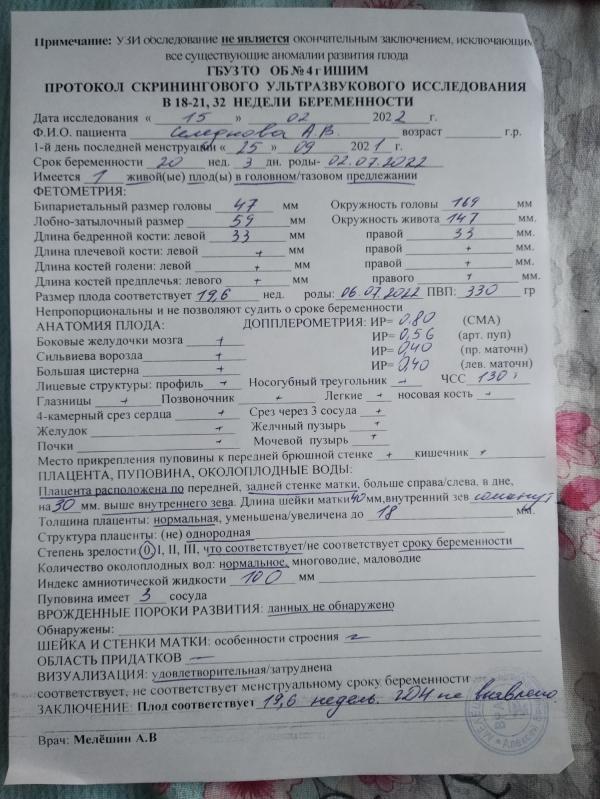 Примечание: УЗИ обследование не является окончательным заключением, исключающим
все существующие аномалии развития плода
ГБУЗ ТО ОБ № 4 г ИШИМ
ПРОТОКОЛ СКРИНИНГОВОГО УЛЬТРАЗВУКОВОГО ИССЛЕДОВАНИЯ
В 18-21, 32 НЕДЕЛИ БЕРЕМЕННОСТИ
Дата исследования « 15 » 02 2022г.
Ф.И.О. пациента А.В. возраст г.р.
1-й день последней менструации « 25 » 09 2021 г.
Срок беременности 20 нед. 3 дн. роды- 02.07.2022
Имеется 1 живой(ые) плод(ы) в головном/тазовом предлежании
ФЕТОМЕТРИЯ:
Бипариетальный размер головы 47 мм Окружность головы 169 мм
Лобно-затылочный размер 59 мм Окружность живота 147 мм.
Длина бедренной кости: левой 33 мм правой 33 мм.
Длина плечевой кости: левой + мм правой + мм.
Длина костей голени: левой + мм правой + мм.
Длина костей предплечья: левого + мм правого + мм.
Размер плода соответствует 19,6 нед. роды: 06.07.2022 ПВП: 330 гр
Непропорциональны и не позволяют судить о сроке беременности
АНАТОМИЯ ПЛОДА: ДОППЛЕРОМЕТРИЯ: ИР= 0.80 (СМА)
Боковые желудочки мозга + ИР= 0,56 (арт. пуп)
Сильвиева ворозда + ИР= 0,40 (пр. маточн)
Большая цистерна + ИР= 0,40 (лев. маточн)
Лицевые структуры: профиль + Носогубный треугольник + ЧСС 130
Глазницы + Позвоночник + Легкие + носовая кость +
4-камерный срез сердца + Срез через 3 сосуда +
Желудок + Желчный пузырь +
Почки + Мочевой пузырь +
Место прикрепления пуповины к передней брюшной стенке + кишечник +
ПЛАЦЕНТА, ПУПОВИНА, ОКОЛОПЛОДНЫЕ ВОДЫ:
Плацента расположена по передней, задней стенке матки, больше справа/слева, в дне,
на 30 мм. выше внутреннего зева. Длина шейки матки 40 мм,внутренний зев сомкнут
Толщина плаценты: нормальная, уменьшена/увеличена до 18 мм.
Структура плаценты: (не) однородная
Степень зрелости: 0, I, II, III, что соответствует/не соответствует сроку беременности
Количество околоплодных вод: нормальное, многоводие, маловодие
Индекс амниотической жидкости 100 мм
Пуповина имеет 3 сосуда
ВРОЖДЕННЫЕ ПОРОКИ РАЗВИТИЯ: данных не обнаружено
Обнаружены:
ШЕЙКА И СТЕНКИ МАТКИ: особенности строения —
ОБЛАСТЬ ПРИДАТКОВ —
ВИЗУАЛИЗАЦИЯ: удовлетворительная/затруднена
соответствует, не соответствует менструальному сроку беременности
ЗАКЛЮЧЕНИЕ: Плод соответствует 19,6 недель. ГДН не выявлено.
Врач: Мелёшин А.В